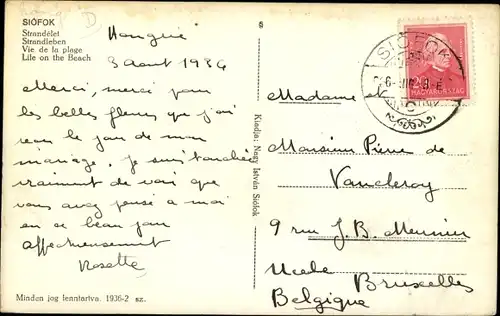 SIÓFOK
Strandélet
Strandleben
Vie de la plage
Life on the Beach
Hongrie
3 Aout 1936
Merci, merci pour
les belles fleurs que j'ai
reçu le jour de mon
mariage. Je suis touchée
vraiment de voir que
vous avez pensé a moi
en ce beau jour
affectueusement
Rosette
Minden jog fenntartva. 1936-2 sz.
Kiadja: Nagy István Siófok
SIÓFOK
MAGYARORSZÁG
Madame et
Monsieur Pierre de
Vancleroy
9 rue J.B. Meunier
Uccle Bruxelles
Belgique